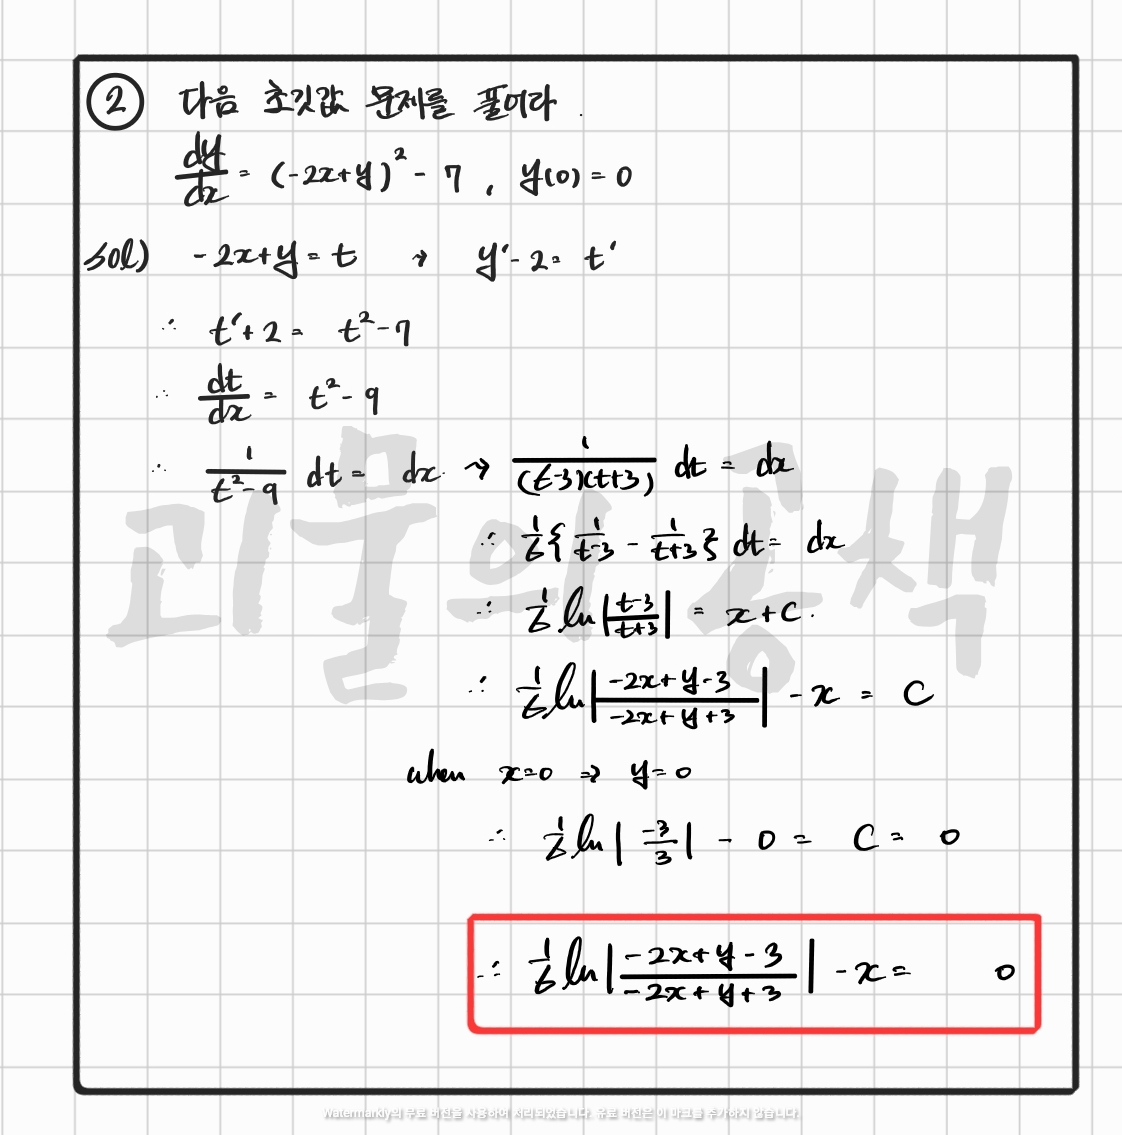 ② 다음 초깃값 문제를 풀어라.
dy/dx = (-2x+y)² - 7 , y(0) = 0
sol) -2x+y = t → y' - 2 = t'
∴ t' + 2 = t² - 7
∴ dt/dx = t² - 9
∴ 1/(t²-9) dt = dx → 1/((t-3)(t+3)) dt = dx
∴ 1/6 { 1/(t-3) - 1/(t+3) } dt = dx
∴ 1/6 ln|(t-3)/(t+3)| = x + C.
∴ 1/6 ln|(-2x+y-3)/(-2x+y+3)| - x = C
when x=0 ⇒ y=0
∴ 1/6 ln|-3/3| - 0 = C = 0
∴ 1/6 ln|(-2x+y-3)/(-2x+y+3)| - x = 0
괴물의 공책
Watermarkly의 무료 버전을 사용하여 처리되었습니다. 유료 버전은 이 마크를 추가하지 않습니다.